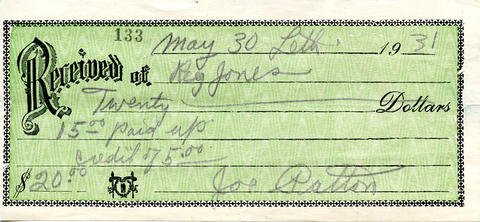 133
May 30 Leth. 1931
Received of Reg Jones
Twenty Dollars
15.00 paid up
credit of 5.00
$20.00 Joe Patton